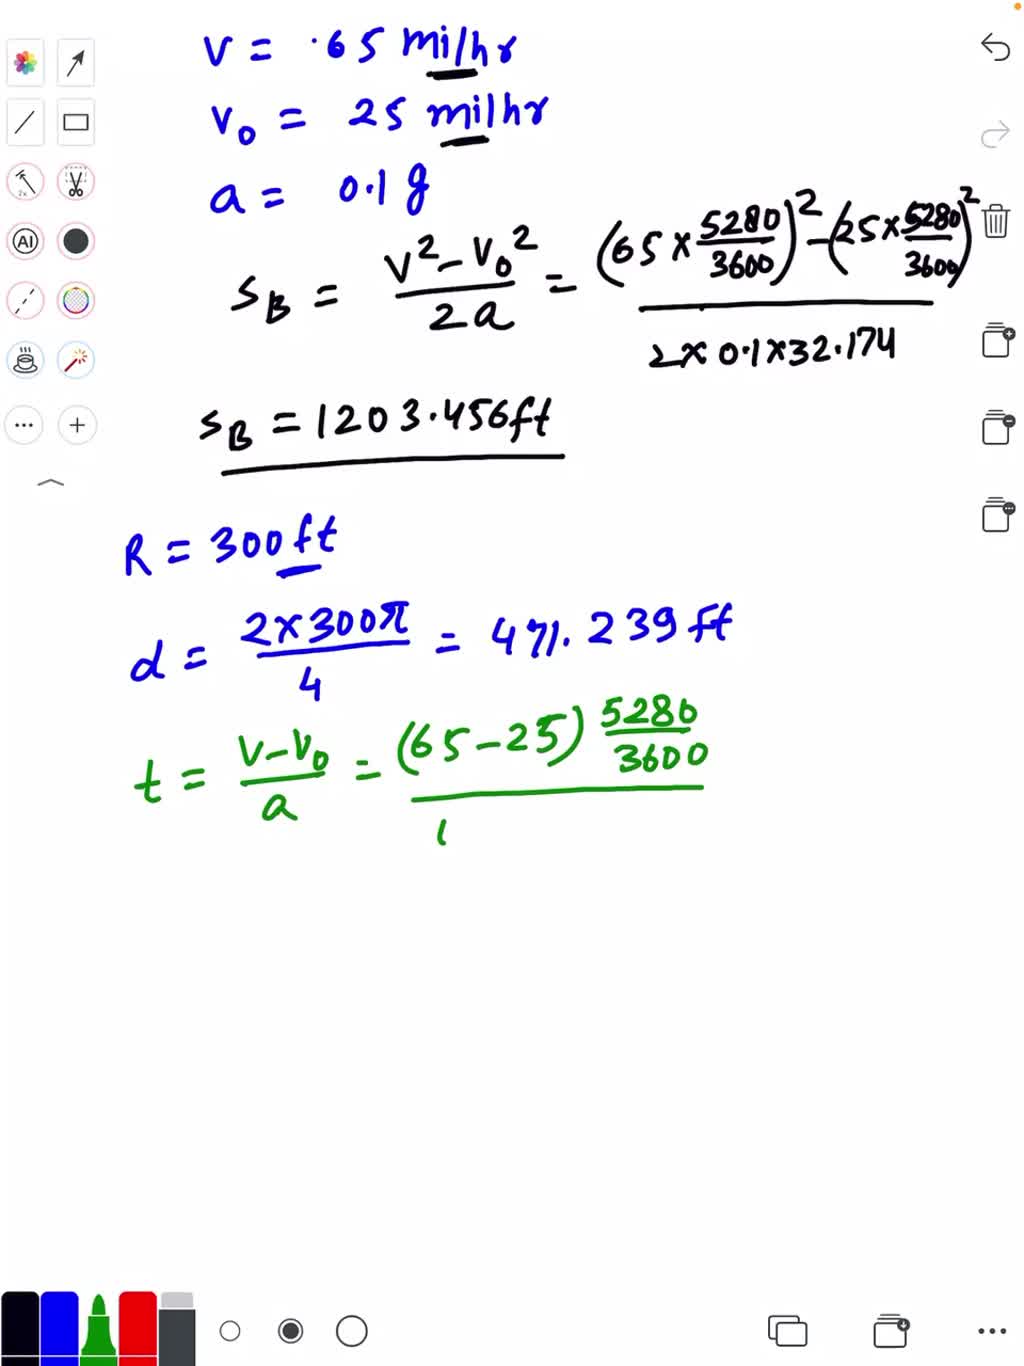 v = .65 mi/hr
v₀ = 25 mi/hr
a = 0.1 g
S_B = (v² - v₀²)/(2a) = ((65 × 5280/3600)² - (25 × 5280/3600)²)/(2 × 0.1 × 32.174)
S_B = 1203.456 ft
R = 300 ft
d = (2 × 300π)/4 = 471.239 ft
t = (v - v₀)/a = ((65 - 25) 5280/3600)/(
AI
2x